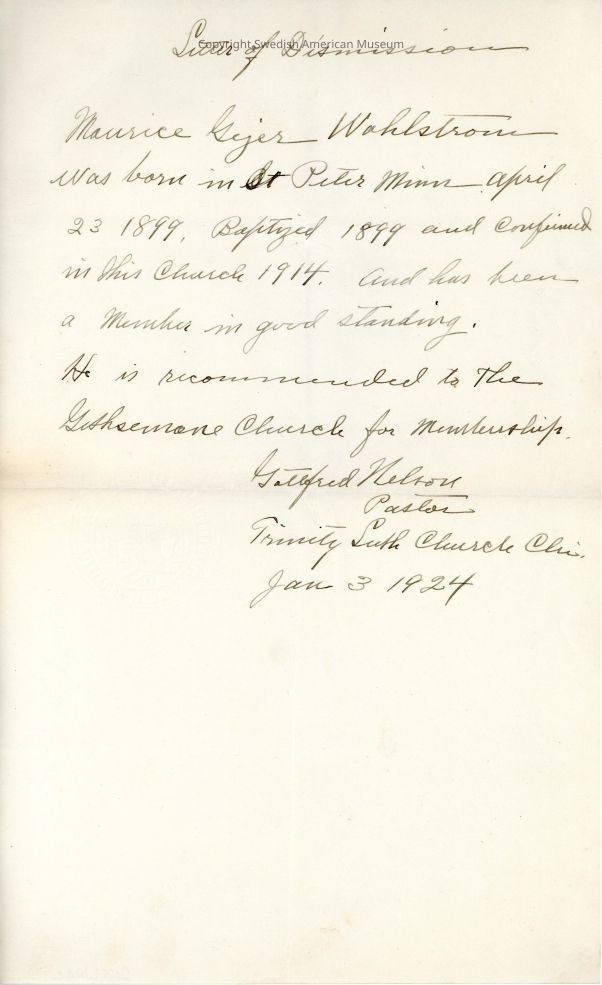 Letter of Dismission
Copyright Swedish American Museum
Maurice Geijer Wahlstrom
was born in St Peter Minn April
23 1899, Baptized 1899 and Confirmed
in this Church 1914. And has been
a Member in good standing.
He is recommended to The
Gethsemane Church for Membership.
Gottfred Nelson
Pastor
Trinity Luth Church Chi.
Jan 3 1924